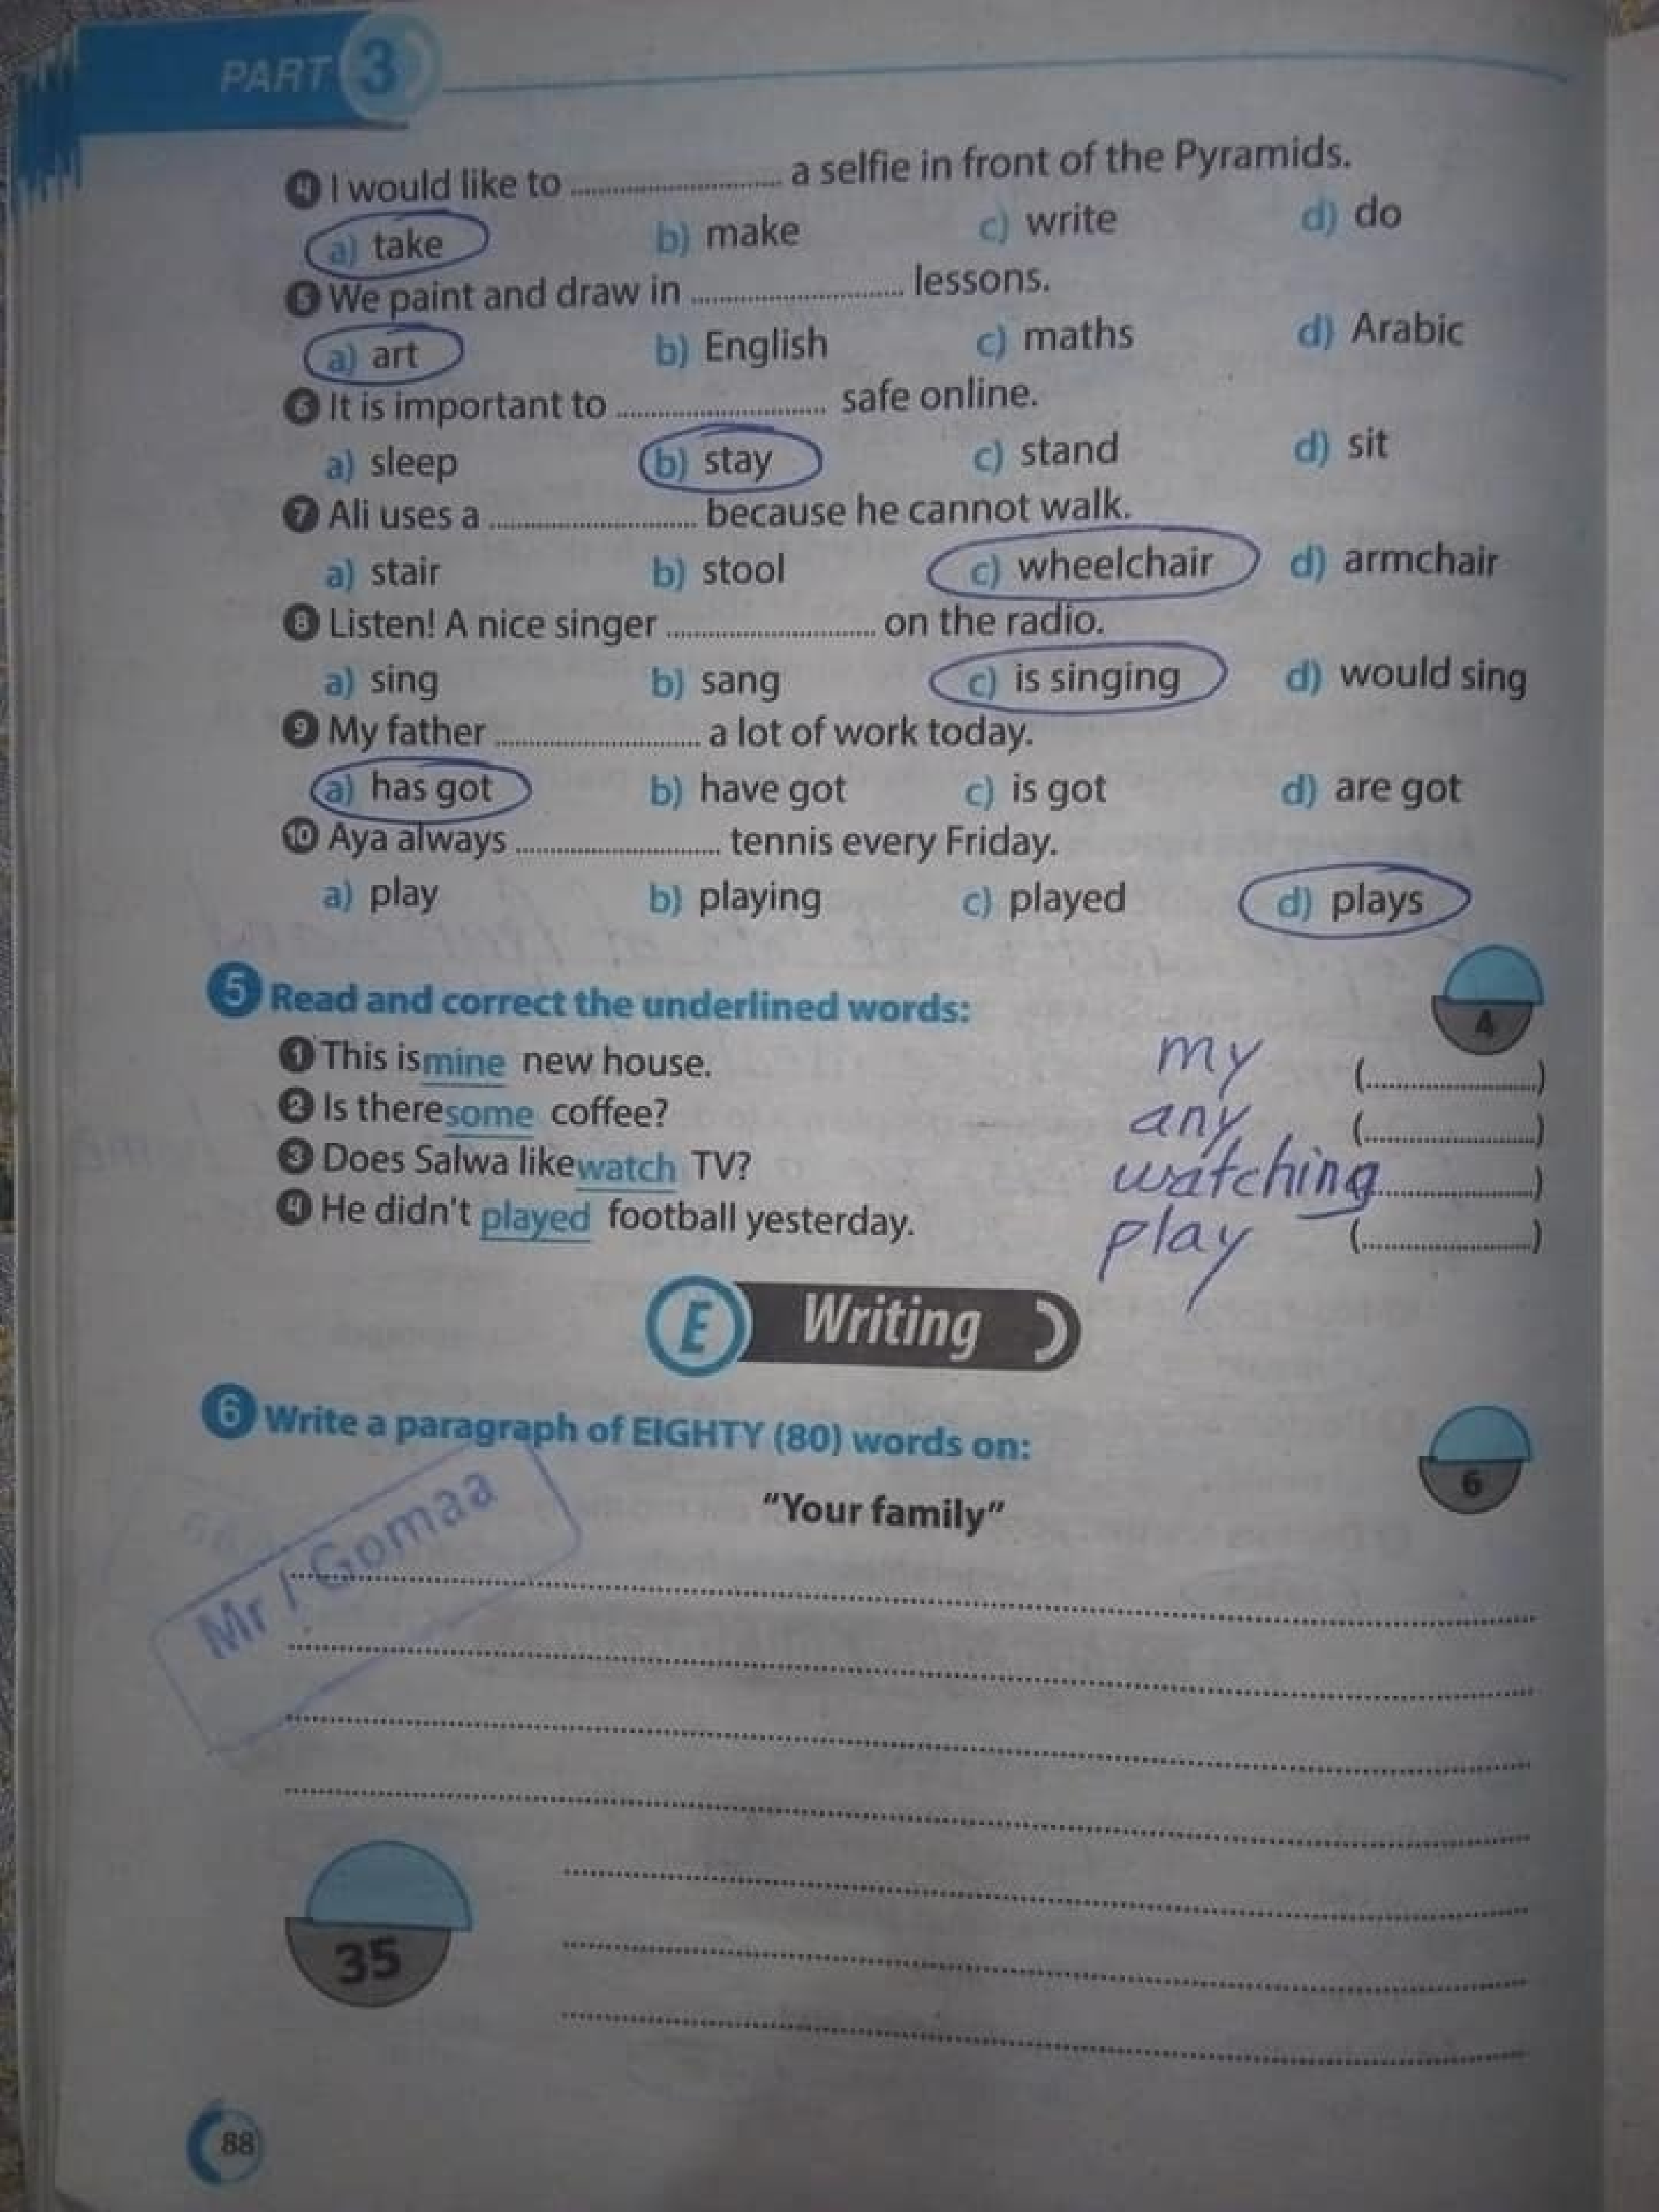 PART 3
4 I would like to .............................. a selfie in front of the Pyramids.
a) take b) make c) write d) do
5 We paint and draw in .............................. lessons.
a) art b) English c) maths d) Arabic
6 It is important to .............................. safe online.
a) sleep b) stay c) stand d) sit
7 Ali uses a .............................. because he cannot walk.
a) stair b) stool c) wheelchair d) armchair
8 Listen! A nice singer .............................. on the radio.
a) sing b) sang c) is singing d) would sing
9 My father .............................. a lot of work today.
a) has got b) have got c) is got d) are got
10 Aya always .............................. tennis every Friday.
a) play b) playing c) played d) plays
5 Read and correct the underlined words:
4
1 This is mine new house. my (..............................)
2 Is there some coffee? any (..............................)
3 Does Salwa like watch TV? watching ..............................)
4 He didn't played football yesterday. play (..............................)
E Writing
6 Write a paragraph of EIGHTY (80) words on:
6
"Your family"
Mr / Gomaa
35
88